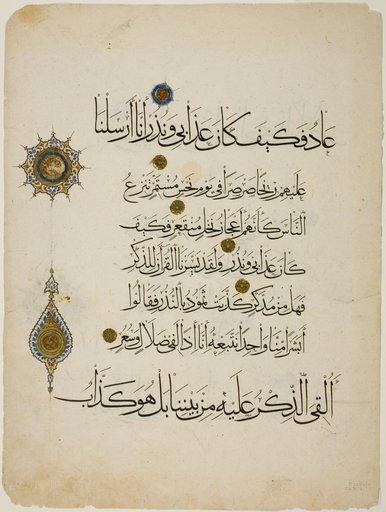 عاد فكيف كان عذابي ونذر انا أرسلنا
عليهم ريحا صرصرا في يوم نحس مستمر تنزع
الناس كأنهم أعجاز نخل منقعر فكيف
كان عذابي ونذر ولقد يسرنا القرآن للذكر
فهل من مدكر كذبت ثمود بالنذر فقالوا
أبشرا منا واحدا نتبعه انا اذا لفي ضلال وسعر
أألقي الذكر عليه من بيننا بل هو كذاب